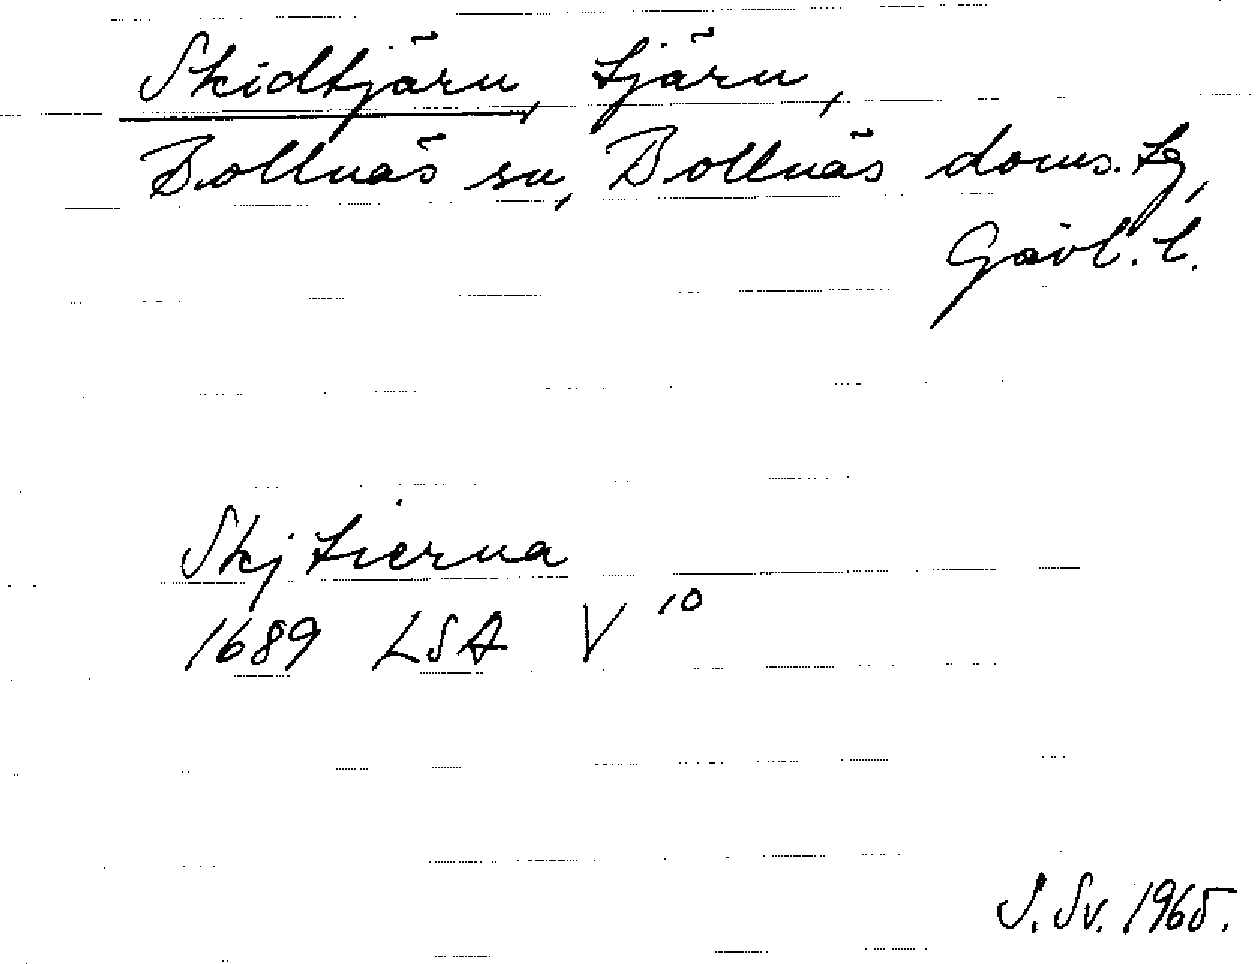 Skidtjärn, tjärn,
Bollnäs sn, Bollnäs doms. lg,
Gävl. l.
Skj tierna
1689 LSA V 10
J. Sv. 1965.